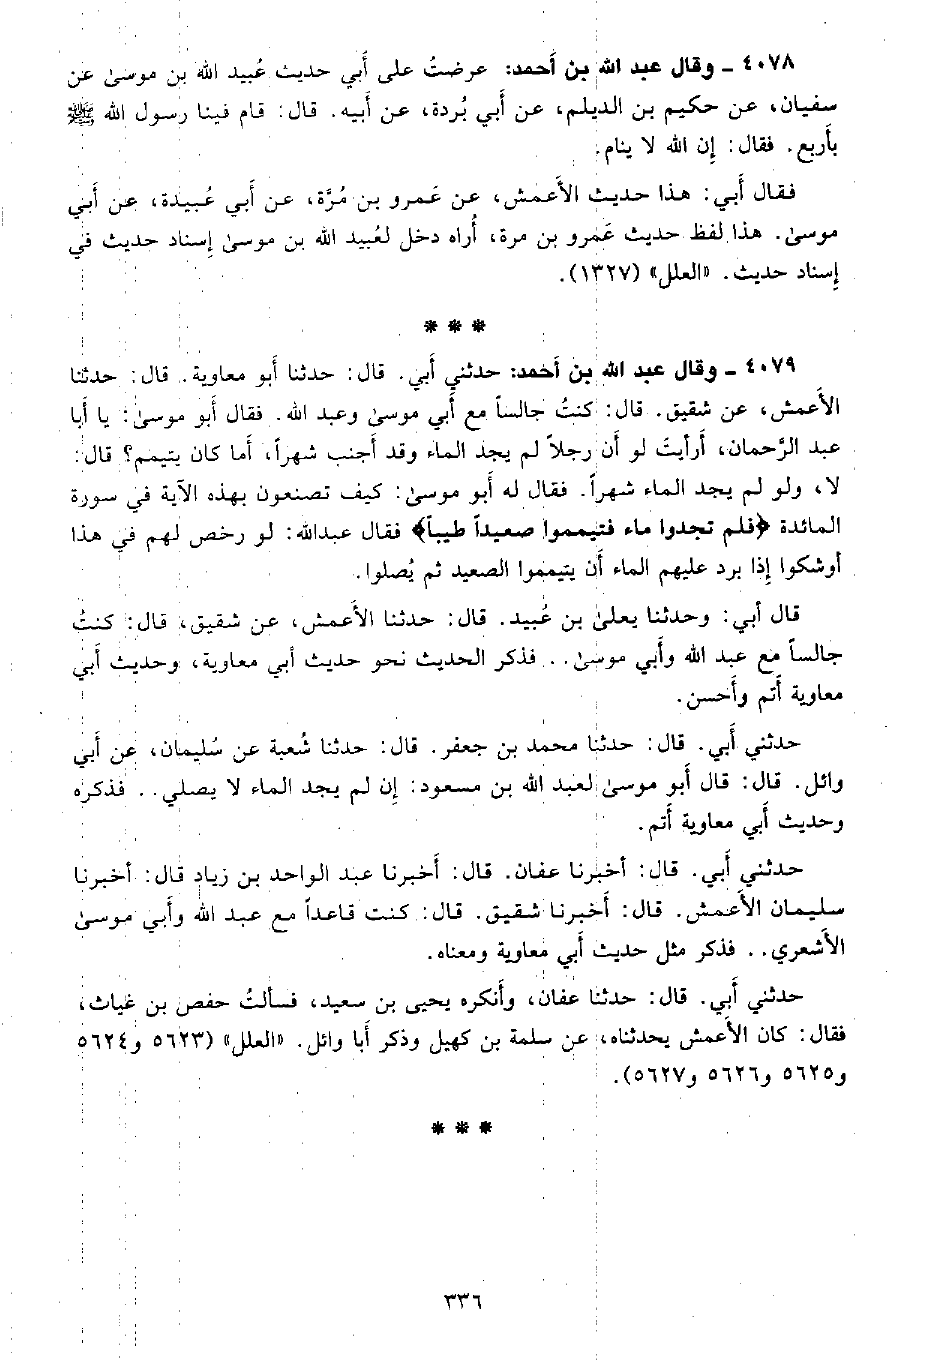 ٤٠٧٨ ـ وقال عبد الله بن أحمد: عرضتُ على أَبي حديث عُبيد الله بن موسىٰ عن
سفيان، عن حكيم بن الديلم، عن أَبي بُردة، عن أَبيه. قال: قام فينا رسول الله ﷺ
بأَربع. فقال: إن الله لا ينام.
فقال أَبي: هذا حديث الأَعمش، عن عَمرو بن مُرَّة، عن أَبي عُبيدة، عن أَبي
موسىٰ. هذا لفظ حديث عَمرو بن مرة، أُراه دخل لعُبيد الله بن موسىٰ إسناد حديث في
إسناد حديث. «العلل» (١٣٢٧).
* * *
٤٠٧٩ ـ وقال عبد الله بن أحمد: حدثني أَبي. قال: حدثنا أَبو معاوية. قال: حدثنا
الأَعمش، عن شقيق. قال: كنتُ جالساً مع أَبي موسىٰ وعبد الله. فقال أَبو موسىٰ: يا أبا
عبد الرَّحمان، أَرأيتَ لو أَن رجلاً لم يجد الماء وقد أَجنب شهراً، أَما كان يتيمم؟ قال:
لا، ولو لم يجد الماء شهراً. فقال له أَبو موسىٰ: كيف تصنعون بهذه الآية في سورة
المائدة ﴿فلم تجدوا ماء فتيمموا صعيداً طيباً﴾ فقال عبدالله: لو رخص لهم في هذا
أوشكوا إذا برد عليهم الماء أَن يتيمموا الصعيد ثم يُصلوا.
قال أَبي: وحدثنا يعلىٰ بن عُبيد. قال: حدثنا الأَعمش، عن شقيق، قال: كنتُ
جالساً مع عبد الله وأَبي موسىٰ.. فذكر الحديث نحو حديث أَبي معاوية، وحديث أَبي
معاوية أَتم وأَحسن.
حدثني أَبي. قال: حدثنا محمد بن جعفر. قال: حدثنا شُعبة عن سُليمان، عن أَبي
وائل. قال: قال أَبو موسىٰ لعبد الله بن مسعود: إن لم يجد الماء لا يصلي.. فذكره
وحديث أَبي معاوية أَتم.
حدثني أَبي. قال: أخبرنا عفان. قال: أَخبرنا عبد الواحد بن زياد قال: أخبرنا
سليمان الأَعمش. قال: أَخبرنا شقيق. قال: كنت قاعداً مع عبد الله وأَبي موسىٰ
الأَشعري.. فذكر مثل حديث أَبي معاوية ومعناه.
حدثني أَبي. قال: حدثنا عفان، وأَنكره يحيى بن سعيد، فسألتُ حفص بن غياث،
فقال: كان الأَعمش يحدثناه، عن سلمة بن كهيل وذكر أَبا وائل. «العلل» (٥٦٢٣ و٥٦٢٤
و٥٦٢٥ و٥٦٢٦ و٥٦٢٧).
* * *
٣٣٦